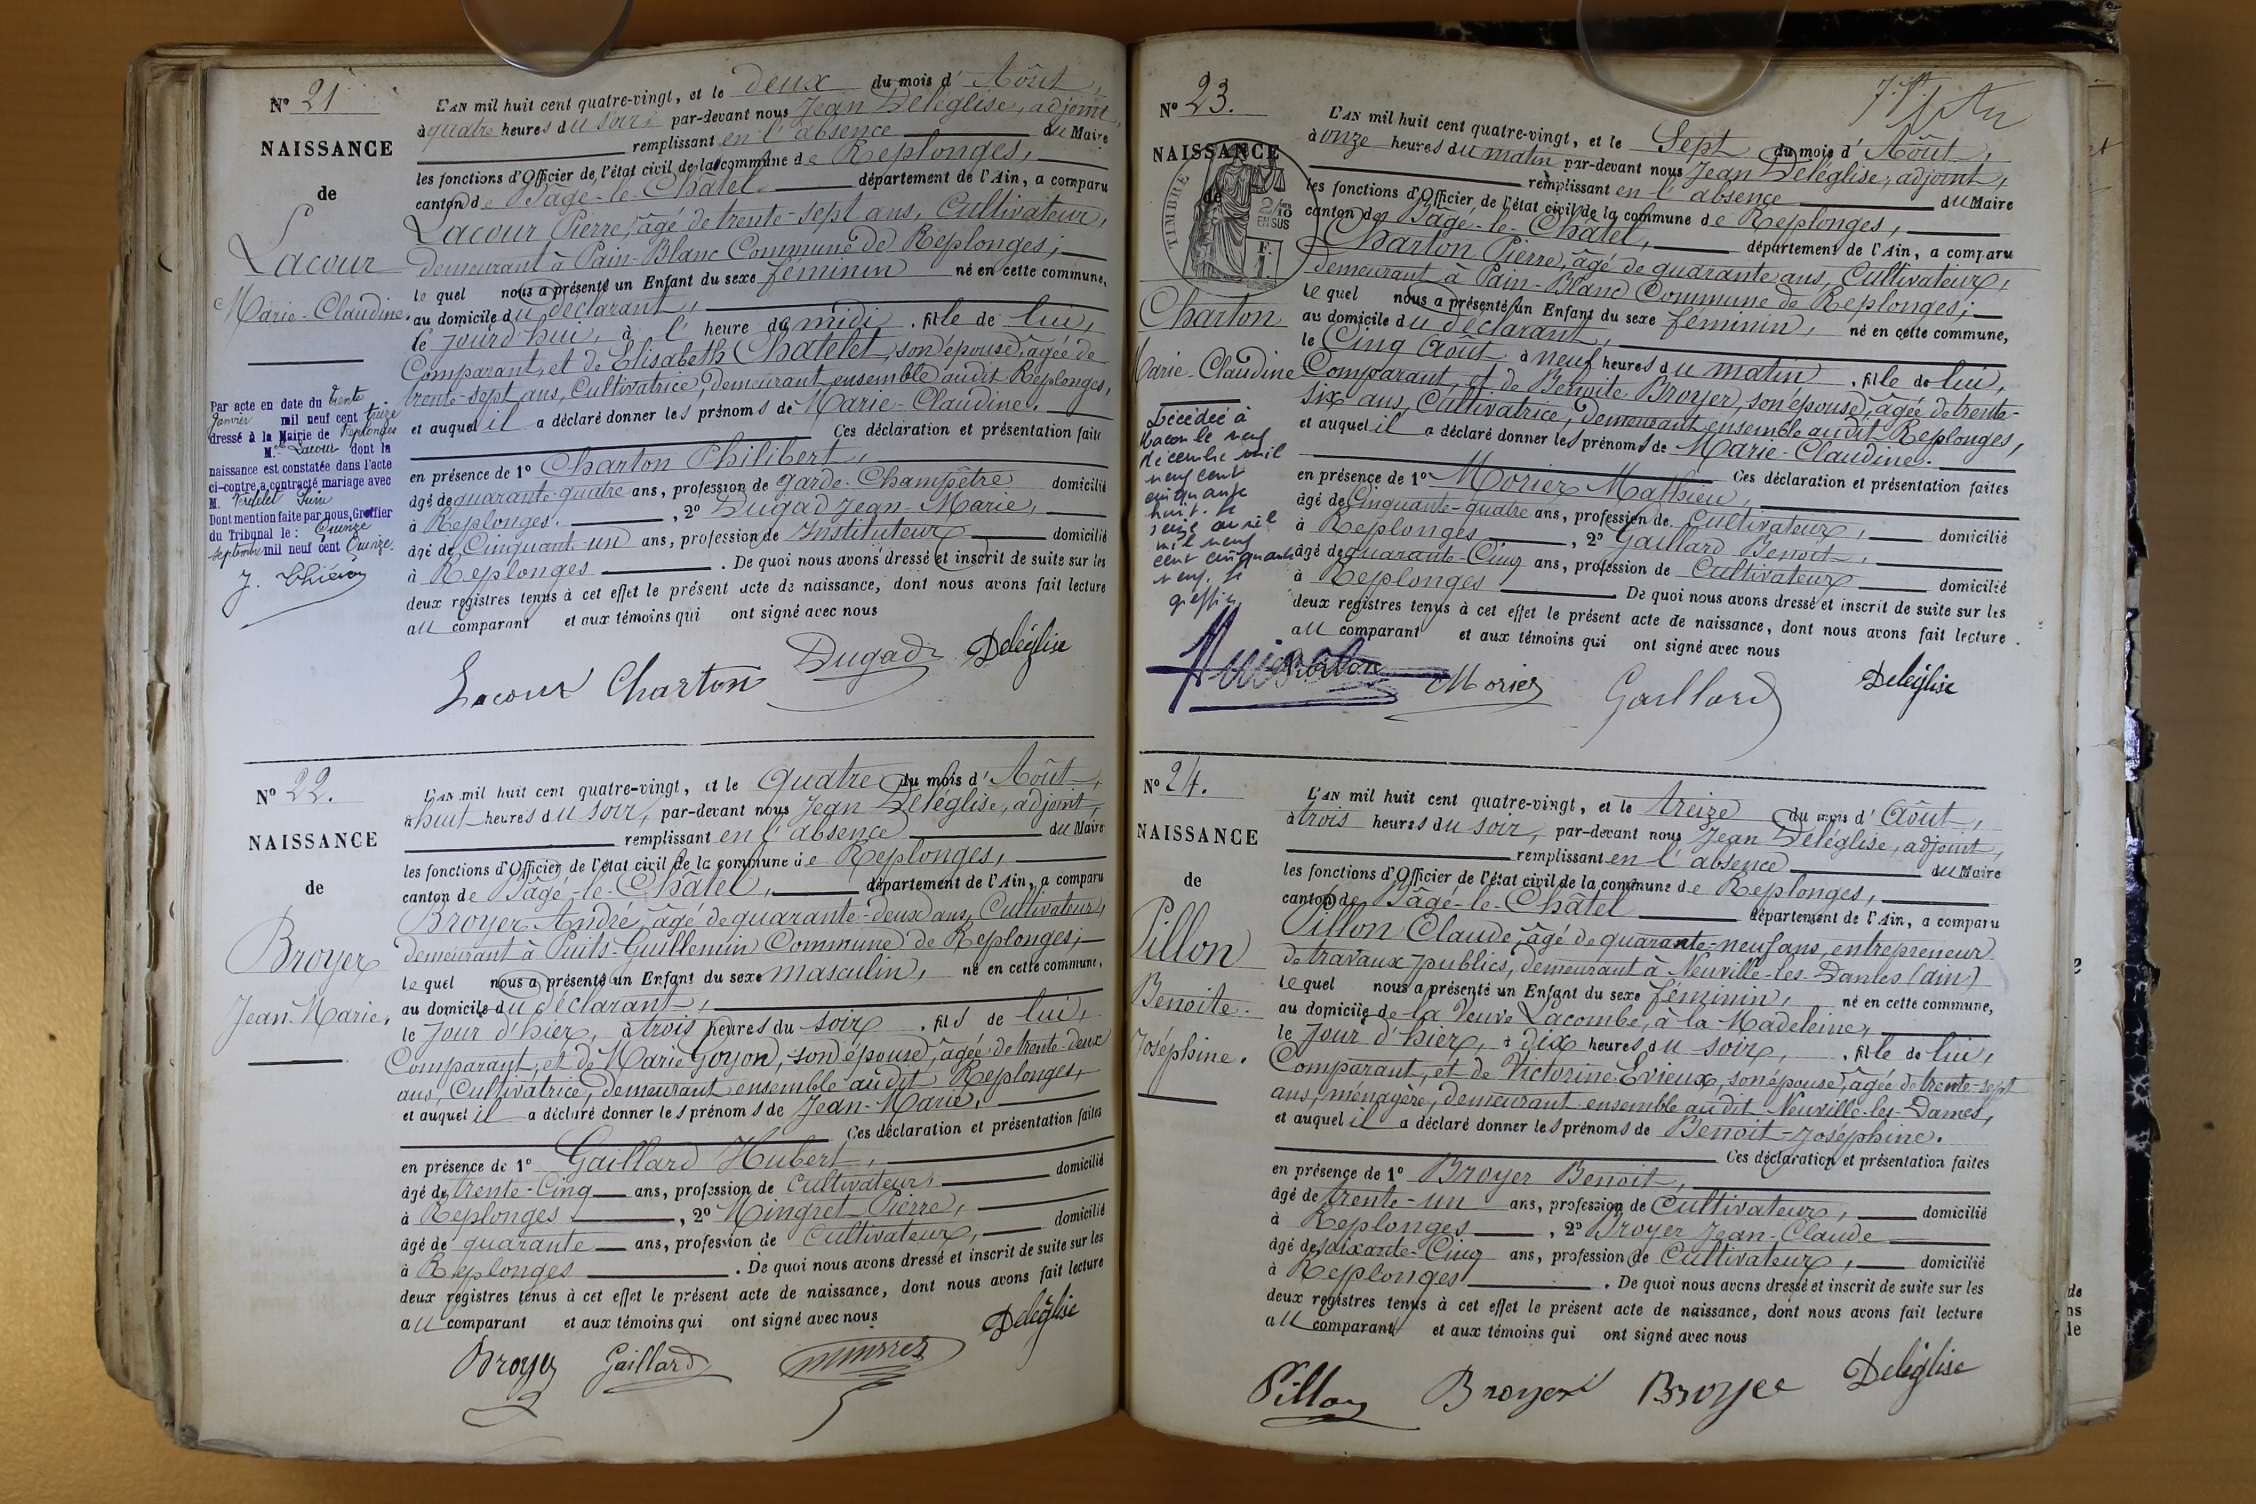 Nº 21
NAISSANCE
de
Lacour
Marie-Claudine.
Par acte en date du trente
Janvier mil neuf cent treize
dressé à la Mairie de Replonges
M. Lacour dont la
naissance est constatée dans l'acte
ci-contre a contracté mariage avec
M.
Dont mention faite par nous, Greffier
du Tribunal le : Quinze
septembre mil neuf cent Quinze.
L'AN mil huit cent quatre-vingt, et le deux du mois d' Aôut,
à quatre heures du soir par-devant nous Jean Deléglise, adjoint,
remplissant en l'absence du Maire
les fonctions d'Officier de l'état civil de la commune de Replonges,
canton de Bâgé-le-Châtel département de l'Ain, a comparu
Lacour Pierre, âgé de trente-sept ans, Cultivateur,
demeurant à Pain-Blanc Commune de Replonges;
le quel nous a présenté un Enfant du sexe féminin né en cette commune,
au domicile du déclarant,
le jourd'hui, à l' heure de midi, fille de lui,
Comparant, et de Elisabeth Chatelet, son épouse, âgée de
trente-sept ans, Cultivatrice, demeurant ensemble audit Replonges,
et auquel il a déclaré donner les prénoms de Marie-Claudine.
Ces déclaration et présentation faites
en présence de 1º Charton Philibert,
âgé de quarante-quatre ans, profession de garde-Champêtre domicilié
à Replonges. , 2º Dugad Jean-Marie,
âgé de Cinquant-un ans, profession de Instituteur domicilié
à Replonges . De quoi nous avons dressé et inscrit de suite sur les
deux registres tenus à cet effet le présent acte de naissance, dont nous avons fait lecture
au comparant et aux témoins qui ont signé avec nous
Lacour Charton Dugad Deléglise
Nº 22.
NAISSANCE
de
Broyer
Jean-Marie.
L'AN mil huit cent quatre-vingt, et le quatre du mois d' Aôut,
à huit heures du soir, par-devant nous Jean Deléglise, adjoint,
remplissant en l'absence du Maire
les fonctions d'Officier de l'état civil de la commune de Replonges,
canton de Bâgé-le-Châtel, département de l'Ain, a comparu
Broyer André, âgé de quarante-deux ans, Cultivateur,
demeurant à Puits-Guillemin Commune de Replonges;
le quel nous a présenté un Enfant du sexe masculin, né en cette commune,
au domicile du déclarant,
le Jour d'hier, à trois heures du soir, fils de lui,
Comparant, et de Marie Goyon, son épouse, âgée de trente-deux
ans, Cultivatrice, demeurant ensemble audit Replonges,
et auquel il a déclaré donner les prénoms de Jean-Marie.
Ces déclaration et présentation faites
en présence de 1º Gaillard Hubert,
âgé de trente-Cinq ans, profession de Cultivateur, domicilié
à Replonges , 2º Mingret Pierre,
âgé de quarante ans, profession de Cultivateur, domicilié
à Replonges . De quoi nous avons dressé et inscrit de suite sur les
deux registres tenus à cet effet le présent acte de naissance, dont nous avons fait lecture
au comparant et aux témoins qui ont signé avec nous
Broyer Gaillard Deléglise
Nº 23.
NAISSANCE
de
TIMBRE
2/10
EN SUS
Charton
Marie-Claudine
Décédée à
Macon le neuf
décembre mil
neuf cent
cinquante
huit. Le
seize avril
mil neuf
cent cinquante
neuf. Le
greffier
L'AN mil huit cent quatre-vingt, et le Sept du mois d' Aôut,
à onze heures du matin par-devant nous Jean Deléglise, adjoint,
remplissant en l'absence du Maire
les fonctions d'Officier de l'état civil de la commune de Replonges,
canton de Bâgé-le-Châtel, département de l'Ain, a comparu
Charton Pierre, âgé de quarante ans, Cultivateur,
demeurant à Pain-Blanc Commune de Replonges;
le quel nous a présenté un Enfant du sexe féminin, né en cette commune,
au domicile du déclarant,
le Cinq Août à neuf heures du matin, fille de lui,
Comparant, et de Benoite Broyer, son épouse, âgée de trente-
six ans, Cultivatrice, demeurant ensemble audit Replonges,
et auquel il a déclaré donner les prénoms de Marie-Claudine.
Ces déclaration et présentation faites
en présence de 1º Morier Mathieu,
âgé de Cinquante-quatre ans, profession de Cultivateur, domicilié
à Replonges , 2º Gaillard Benoit,
âgé de quarante-Cinq ans, profession de Cultivateur domicilié
à Replonges De quoi nous avons dressé et inscrit de suite sur les
deux registres tenus à cet effet le présent acte de naissance, dont nous avons fait lecture
au comparant et aux témoins qui ont signé avec nous
Charton Morier Gaillard Deléglise
Nº 24.
NAISSANCE
de
Pillon
Benoite-
Joséphine.
L'AN mil huit cent quatre-vingt, et le treize du mois d' Aôut,
à trois heures du soir, par-devant nous Jean Deléglise, adjoint,
remplissant en l'absence du Maire
les fonctions d'Officier de l'état civil de la commune de Replonges,
canton de Bâgé-le-Châtel département de l'Ain, a comparu
Pillon Claude, âgé de quarante-neuf ans, entrepreneur
de travaux publics, demeurant à Neuville-les-Dames (ain)
le quel nous a présenté un Enfant du sexe féminin, né en cette commune,
au domicile de la Veuve Lacombe, à la Madeleine,
le Jour d'hier, à dix heures du soir, fille de lui,
Comparant, et de Victorine Evieux, son épouse, âgée de trente-sept
ans, ménagère, demeurant ensemble audit Neuville-les-Dames,
et auquel il a déclaré donner les prénoms de Benoit-Joséphine.
Ces déclaration et présentation faites
en présence de 1º Broyer Benoit,
âgé de trente-un ans, profession de Cultivateur, domicilié
à Replonges , 2º Broyer Jean-Claude
âgé de soixante-Cinq ans, profession de Cultivateur, domicilié
à Replonges . De quoi nous avons dressé et inscrit de suite sur les
deux registres tenus à cet effet le présent acte de naissance, dont nous avons fait lecture
au comparant et aux témoins qui ont signé avec nous
Pillon Broyer Broyer Deléglise